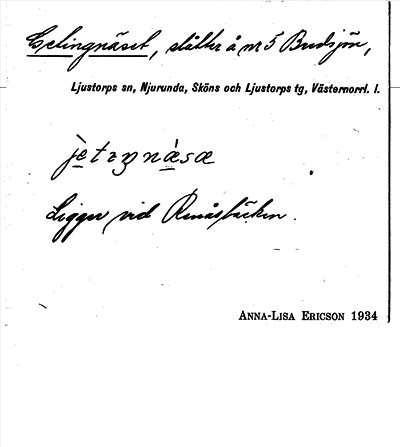 Getingnäset, slåtter å nr 5 Bredsjön,
Ljustorps sn, Njurunda, Sköns och Ljustorps tg, Västernorrl. l.
Ligger vid Renåsbäcken.
ANNA-LISA ERICSON 1934